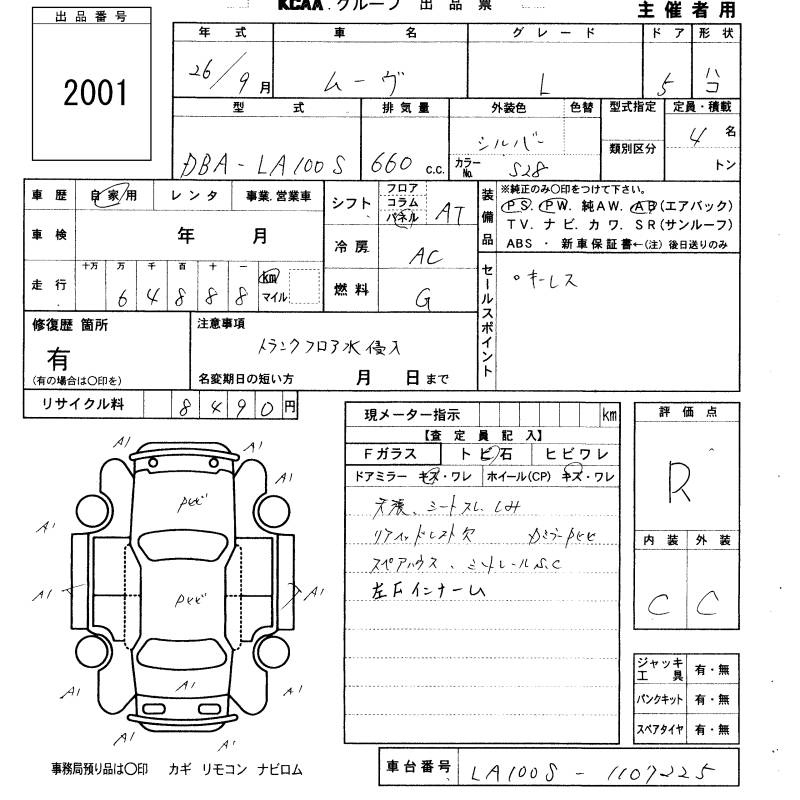 KCAA グループ 出品票
主催者用
出品番号
2001
年式 車名 グレード ドア 形状
26/9月 ムーヴ L 5 ハコ
型式 排気量 外装色 色替 型式指定 定員・積載
DBA-LA100S 660 c.c. シルバー 類別区分 4 名
カラーNo. S28 トン
車歴 自家用 レンタ 事業.営業車
シフト フロア コラム パネル AT
装備品 ※純正のみ〇印をつけて下さい。
PS. PW. 純AW. AB(エアバック)
TV. ナビ. カワ. SR(サンルーフ)
ABS ・ 新車保証書←(注) 後日送りのみ
車検 年 月
冷房 AC
走行 十万 万 千 百 十 一
6 4 8 8 8 km マイル
燃料 G
セールスポイント
。キーレス
修復歴 箇所
有
(有の場合は〇印を)
注意事項
トランクフロア水侵入
名変期日の短い方 月 日まで
リサイクル料 8490円
現メーター指示 km
【査定員記入】
Fガラス トビ石 ヒビワレ
ドアミラー キズ・ワレ ホイール(CP) キズ・ワレ
シートスレ. しみ
スペアハウス.
左Fインナーム
評価点
R
内装 外装
C C
ジャッキ工具 有・無
パンクキット 有・無
スペアタイヤ 有・無
A1 A1
A1 A1
A1 A1
A1 A1 A1
A1 A1
事務局預り品は〇印 カギ リモコン ナビロム
車台番号 LA100S-1107225